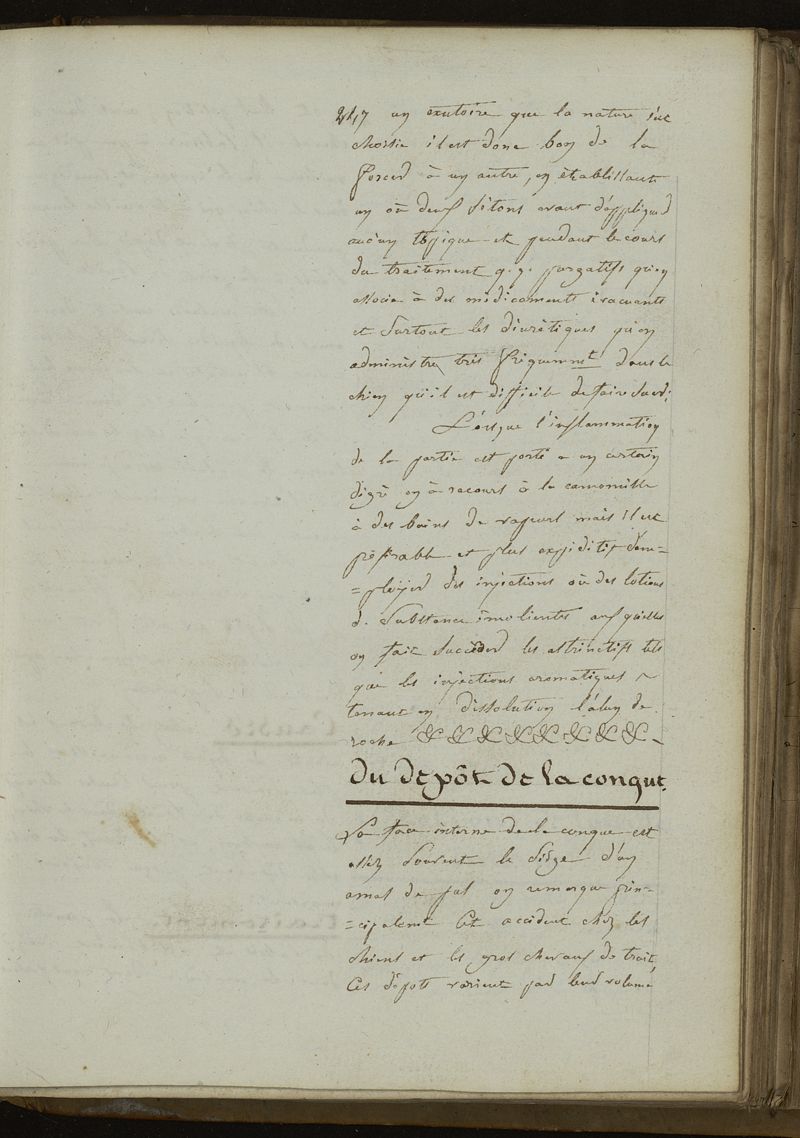 247 un exutoire que la nature s'ut
choisie il est donc bon de la
forcer à un autre, en établissant
un où deux sétons avant d'appliquer
aucun topique et pendant le cours
du traitement q.q. purgatifs qu'on
associe à des médicaments évacuants
et surtout les diurétiques qu'on
administre très fréquemmt dans le
chien qu'il est difficile de faire suer;
Lorsque l'inflammation
de la partie est porté a un certain
degré on à recours à la camomille
à des bains de vapeurs mais il est
préférable et plus expéditif d'em=
=ployer des injections où des lotions
d. substance émolientes auxquelles
on fait succéder les astrinctifs tels
que les injections aromatiques ~
tenant en dissolution l'alun de
roche & & & & & & & & -
du depôt de la conque.
La face interne de la conque est
assez souvent le siége d'un
amas de pus on remarque prin=
=cipalemt cet accident chez les
chiens et les gros chevaux de trait
Ces dépots varient par leur volume